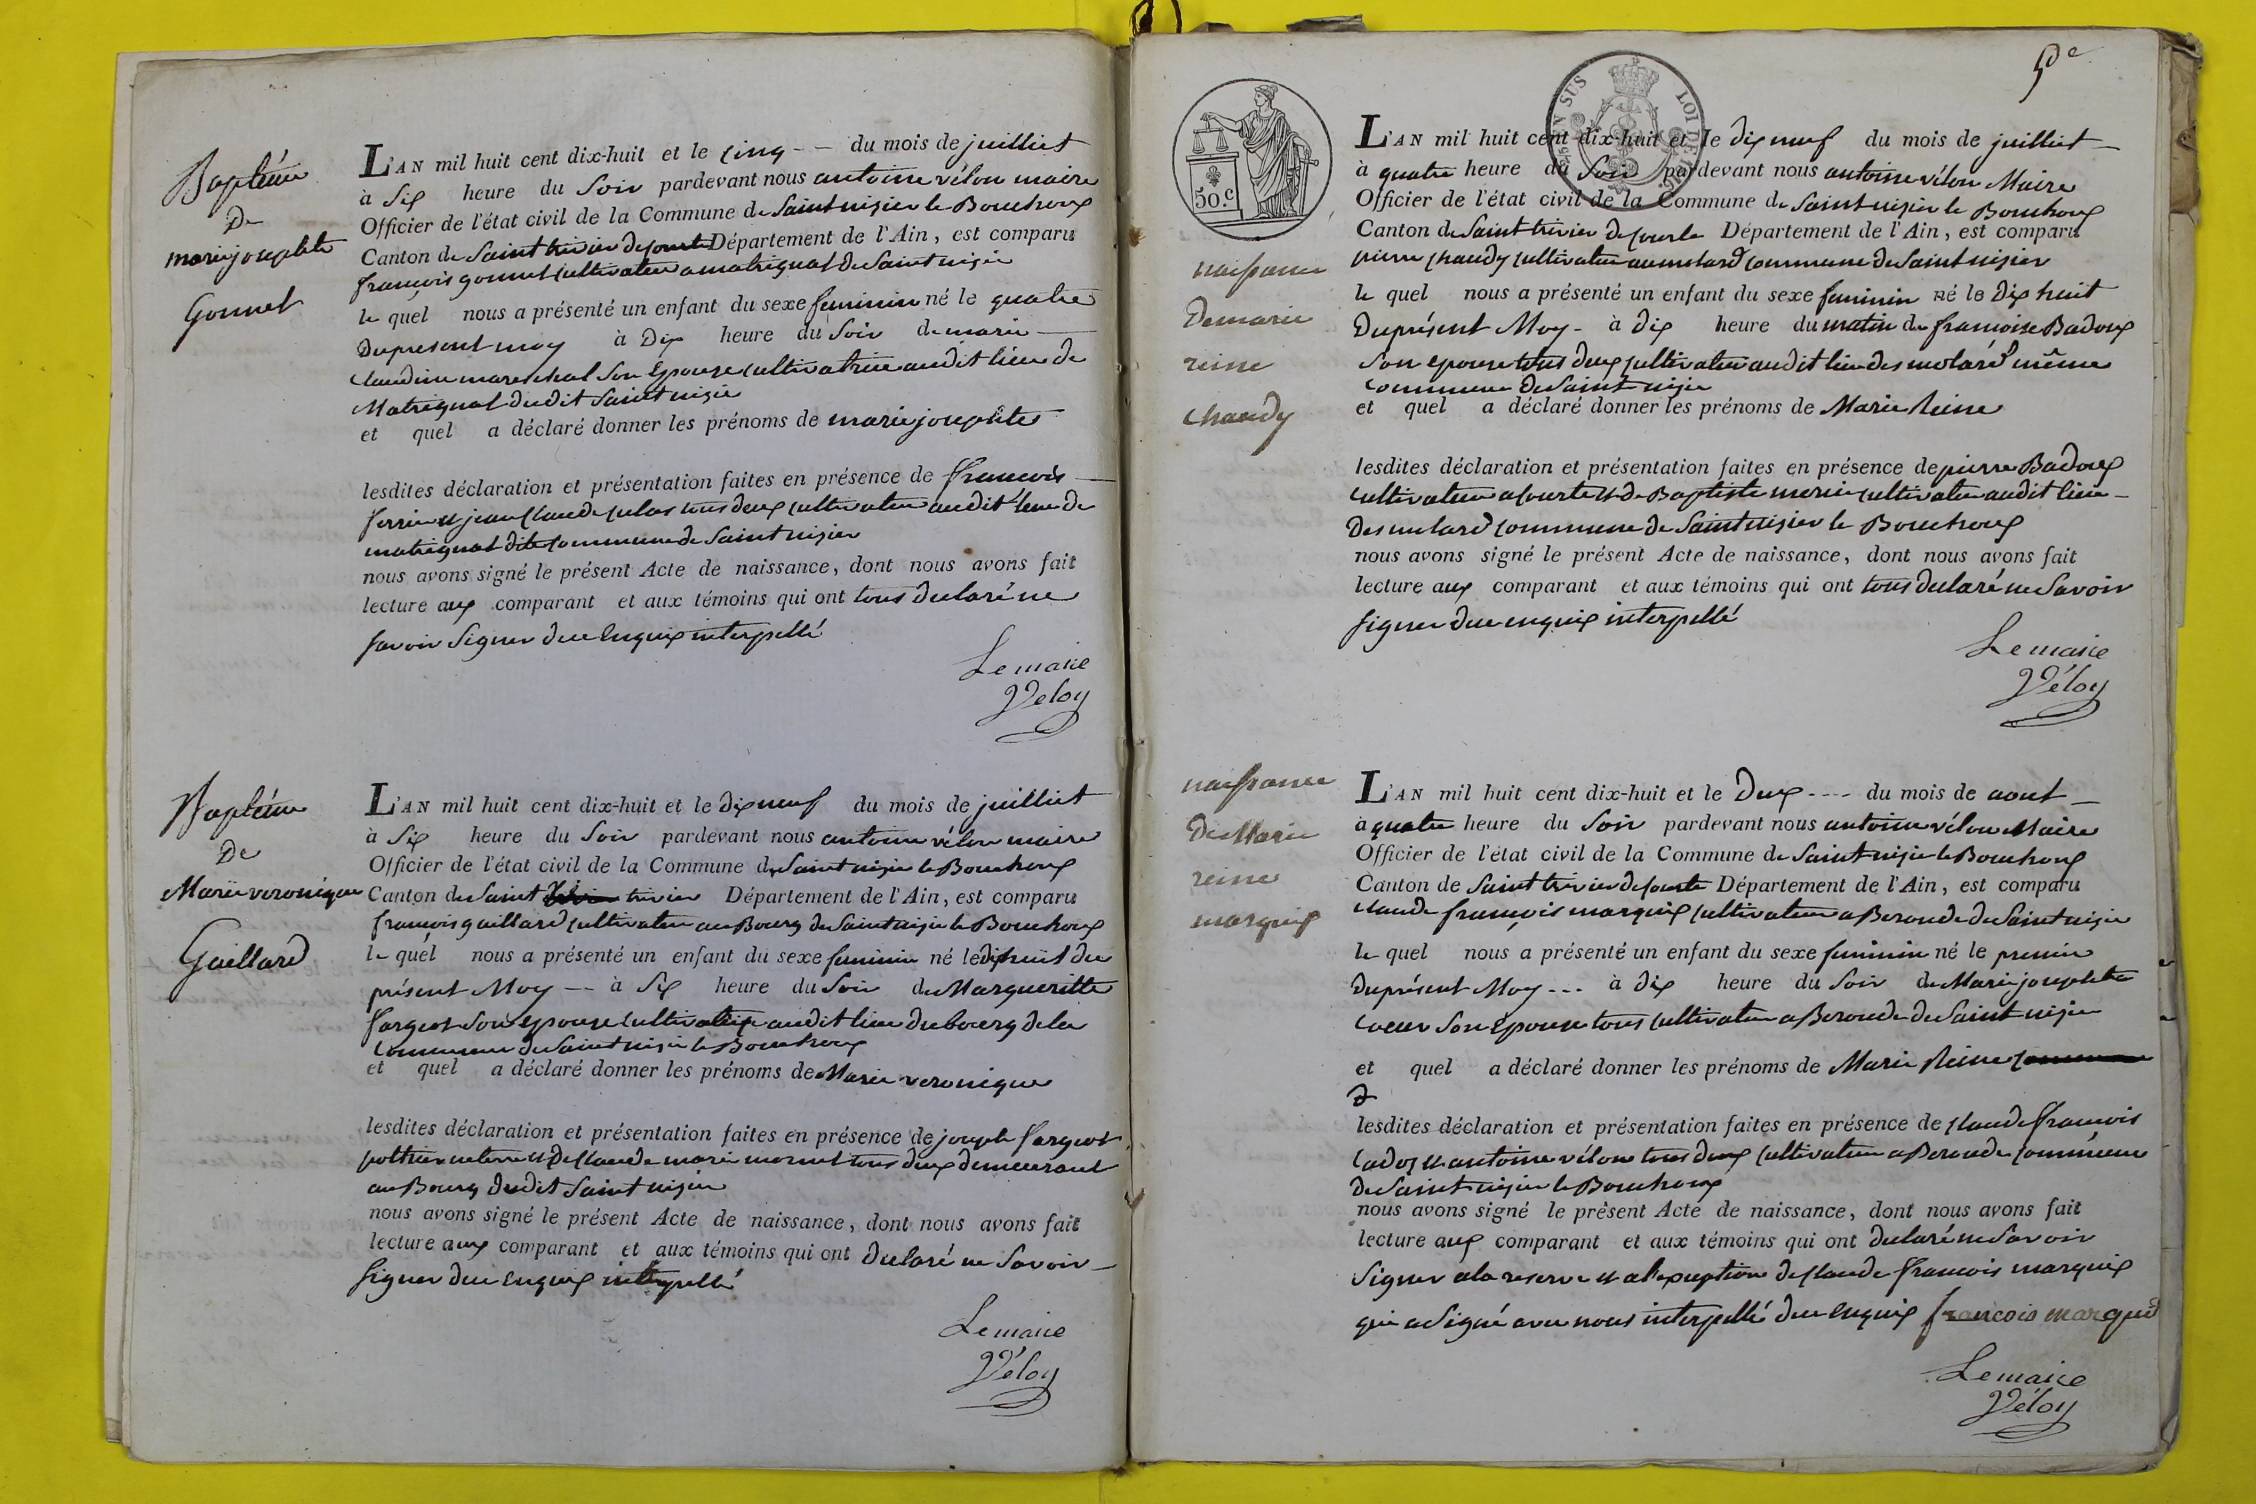 Baptéme
De
marie josephte
Gonnet
L'AN mil huit cent dix-huit et le cinq -- du mois de juilliet
à Six heure du Soir pardevant nous antoine vélon maire
Officier de l'état civil de la Commune de Saint nizier le Bouchoux
Canton de Saint trivier de Courte Département de l'Ain, est comparu
françois gonnet cultivateur a matrignat de Saint nizier
le quel nous a présenté un enfant du sexe feminin né le quatre
Du present moy à Dix heure du Soir de marie
claudine mareschal Son Epouse cultivatrice audit lieu de
Matrignat dudit Saint nizier
et quel a déclaré donner les prénoms de marie josephte
lesdites déclaration et présentation faites en présence de francois
et jean Claude tous deux cultivateur audit lieu de
matrignat dite commune de Saint nizier
nous avons signé le présent Acte de naissance, dont nous avons fait
lecture aux comparant et aux témoins qui ont tous declaré ne
Savoir Signer due Enquis interpellé
Le maire
Véloy
Baptéme
De
Marie veronique
Gaillard
L'AN mil huit cent dix-huit et le dix neuf du mois de juilliet
à Six heure du Soir pardevant nous antoine vélon maire
Officier de l'état civil de la Commune de Saint nizier le Bouchoux
Canton de Saint trivier Département de l'Ain, est comparu
françois gaillard cultivateur au Bourg de Saint nizier le Bouchoux
le quel nous a présenté un enfant du sexe feminin né le dixhuit du
présent Moy -- à Six heure du Soir de Margueritte
fargeot Son epouse cultivatrice audit lieu du bourg de la
Commune de Saint nizier le Bouchoux
et quel a déclaré donner les prénoms de Marie veronique
lesdites déclaration et présentation faites en présence de joseph fargeot
et De Claude marie tous deux demeurant
au Bourg dudit Saint nizier
nous avons signé le présent Acte de naissance, dont nous avons fait
lecture aux comparant et aux témoins qui ont declaré ne Savoir
Signer due Enquis interpellé
Le maire
Véloy
5De
50.c
naissance
De marie
reine
Chaudy
L'AN mil huit cent dix-huit et le dix neuf du mois de juilliet
à quatre heure du Soir pardevant nous antoine vélon Maire
Officier de l'état civil de la Commune de Saint nizier le Bouchoux
Canton de Saint trivier de Courte Département de l'Ain, est comparu
pierre Chaudy cultivateur au molard commune de Saint nizier
le quel nous a présenté un enfant du sexe feminin né le Dix huit
Du présent Moy - à dix heure du matin de francoise Badoux
Son epouse tous deux cultivateur audit lieu des molard même
Commune de Saint nizier
et quel a déclaré donner les prénoms de Marie Reine
lesdites déclaration et présentation faites en présence de pierre Badoux
cultivateur a Courte et de Baptiste cultivateur audit lieu
Des molard commune de Saint nizier le Bouchoux
nous avons signé le présent Acte de naissance, dont nous avons fait
lecture aux comparant et aux témoins qui ont tous declaré ne Savoir
Signer due enquis interpellé
Le maire
Véloy
naissance
De Marie
reine
marquis
L'AN mil huit cent dix-huit et le Deux ---- du mois de aout
à quatre heure du Soir pardevant nous antoine vélon Maire
Officier de l'état civil de la Commune de Saint nizier le Bouchoux
Canton de Saint trivier de Courte Département de l'Ain, est comparu
Claude françois marquis cultivateur a Beroude de Saint nizier
le quel nous a présenté un enfant du sexe feminin né le premier
Du présent Moy --- à dix heure du Soir de Marie josephte
Coeur Son Epouse tous cultivateur a Beroude de Saint nizier
et quel a déclaré donner les prénoms de Marie Reine
lesdites déclaration et présentation faites en présence de Claude francois
Cadoz et antoine vélon tous deux cultivateur a Beroude commune
de Saint nizier le Bouchoux
nous avons signé le présent Acte de naissance, dont nous avons fait
lecture aux comparant et aux témoins qui ont declaré ne Savoir
Signer a la reserve et a l'exception de Claude francois marquis
qui a Signé avec nous interpellé due Enquis francois marquis
Le maire
Véloy